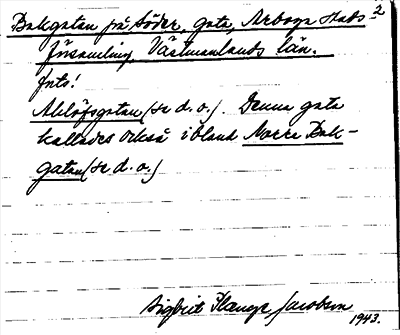 Bakgatan på Söder, gata, Arboga Stads- 2
församling, Västmanlands län.
foto!
Ahllöfsgatan (se d. o.). Denna gata
kallades också ibland Norra Bak-
gatan (se d. o.)
Sigbrit Plænge Jacobson
1943.